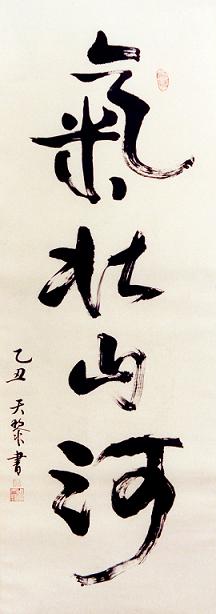 氣壯山河
乙丑 天黎書